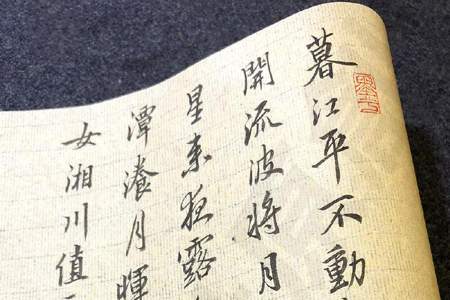 暮江平不動
開流波将月
星来夜露
潭瀁月暉
女湘川值